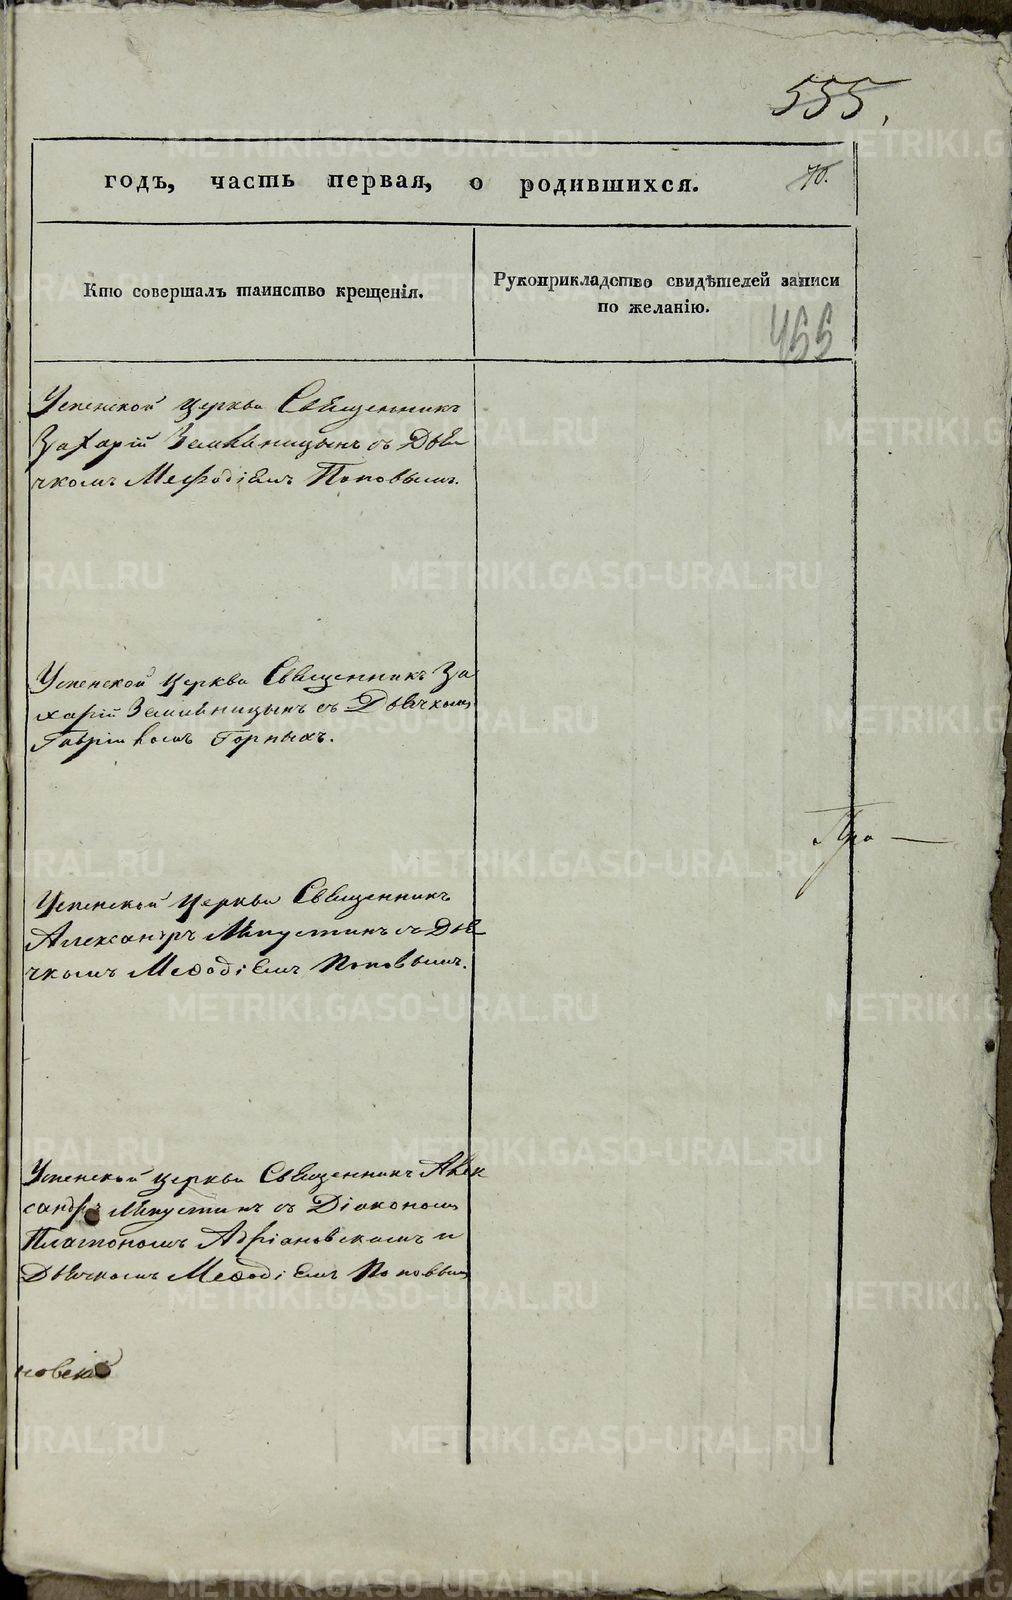 555.
годъ, часть первая, о родившихся.
70.
Кто совершалъ таинство крещенія.
Рукоприкладство свидѣтелей записи
по желанію.
455
Успенской церкви Священникъ
Захарій Земляницынъ съ Дья
чкомъ Мефодіемъ Поповымъ.
Успенской церкви Священникъ За
харій Земляницынъ съ Дьячкомъ
Горныхъ.
Успенской церкви Священникъ
Александръ съ Дья
чкомъ Меѳодіемъ Поповымъ.
Успенской церкви Священникъ Алек
сандръ съ Діакономъ
Платономъ Адріановскимъ и
Дьячкомъ Меѳодіемъ Поповым
Про
METRIKI.GASO-URAL.RU